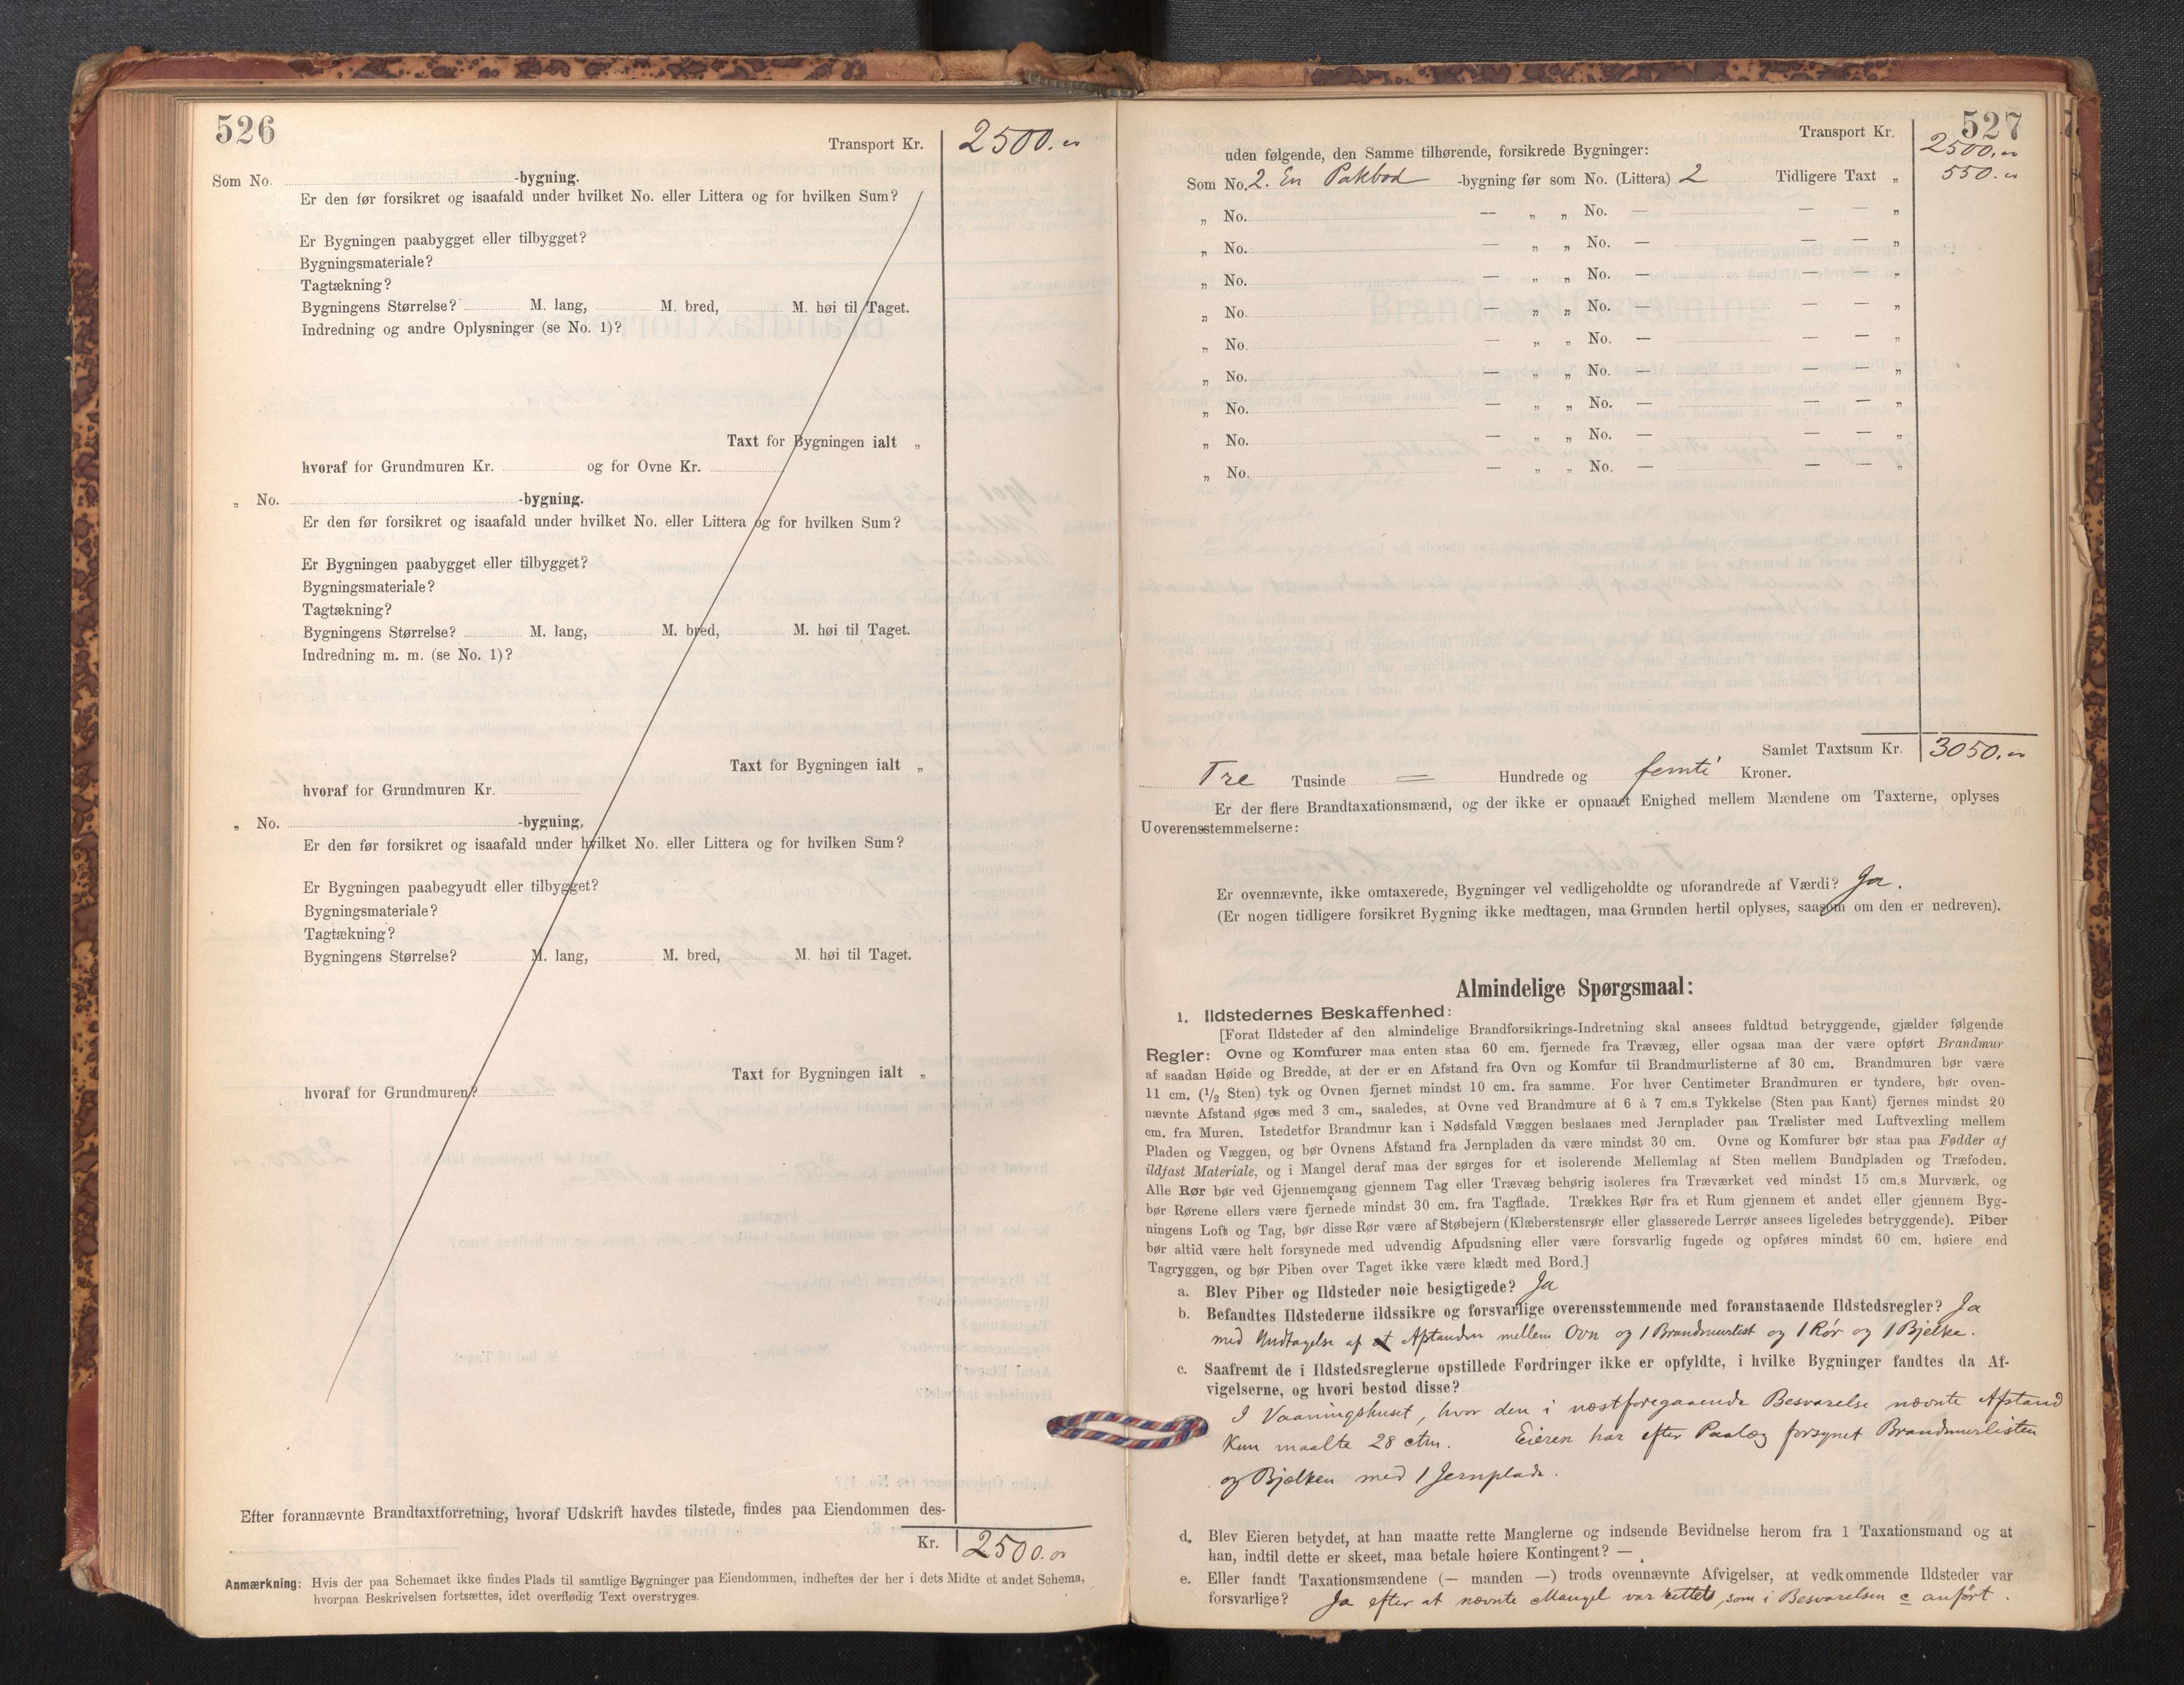 526
Transport Kr. 2500.
Som No. -bygning.
Er den før forsikret og isaafald under hvilket No. eller Littera og for hvilken Sum?
Er Bygningen paabygget eller tilbygget?
Bygningsmateriale?
Tagtækning?
Bygningens Størrelse? M. lang, M. bred, M. høi til Taget.
Indredning og andre Oplysninger (se No. 1)?
Taxt for Bygningen ialt „
hvoraf for Grundmuren Kr. og for Ovne Kr.
„ No. -bygning.
Er den før forsikret og isaafald under hvilket No. eller Littera og for hvilken Sum?
Er Bygningen paabygget eller tilbygget?
Bygningsmateriale?
Tagtækning?
Bygningens Størrelse? M. lang, M. bred, M. høi til Taget.
Indredning m. m. (se No. 1)?
Taxt for Bygningen ialt „
hvoraf for Grundmuren Kr.
„ No. -bygning,
Er den før forsikret og isaafald under hvilket No. eller Littera og for hvilken Sum?
Er Bygningen paabegyudt eller tilbygget?
Bygningsmateriale?
Tagtækning?
Bygningens Størrelse? M. lang, M. bred, M. høi til Taget.
Taxt for Bygningen ialt „
hvoraf for Grundmuren?
Efter forannævnte Brandtaxtforretning, hvoraf Udskrift havdes tilstede, findes paa Eiendommen des-
Kr. 2500.
Anmærkning: Hvis der paa Schemaet ikke findes Plads til samtlige Bygninger paa Eiendommen, indheftes der her i dets Midte et andet Schema,
hvorpaa Beskrivelsen fortsættes, idet overflødig Text overstryges.
527
Transport Kr. 2500.
uden følgende, den Samme tilhørende, forsikrede Bygninger:
Som No. 2. En Pakbod -bygning før som No. (Littera) 2 Tidligere Taxt „ 550.
„ No. — „ „ No. — — — „
„ No. — „ „ No. — — — „
„ No. — „ „ No. — — — „
„ No. — „ „ No. — — — „
„ No. — „ „ No. — — — „
„ No. — „ „ No. — — — „
„ No. — „ „ No. — — — „
„ No. — „ „ No. — — — „
„ No. — „ „ No. — — — „
Samlet Taxtsum Kr. 3050.
Tre Tusinde = Hundrede og femti Kroner.
Er der flere Brandtaxationsmænd, og der ikke er opnaaet Enighed mellem Mændene om Taxterne, oplyses
Uoverensstemmelserne:
Er ovennævnte, ikke omtaxerede, Bygninger vel vedligeholdte og uforandrede af Værdi? Ja.
(Er nogen tidligere forsikret Bygning ikke medtagen, maa Grunden hertil oplyses, saasom om den er nedreven).
Almindelige Spørgsmaal:
1. Ildstedernes Beskaffenhed:
[Forat Ildsteder af den almindelige Brandforsikrings-Indretning skal ansees fuldtud betryggende, gjælder følgende
Regler: Ovne og Komfurer maa enten staa 60 cm. fjernede fra Trævæg, eller ogsaa maa der være opført Brandmur
af saadan Høide og Bredde, at der er en Afstand fra Ovn og Komfur til Brandmurlisterne af 30 cm. Brandmuren bør være
11 cm. (1/2 Sten) tyk og Ovnen fjernet mindst 10 cm. fra samme. For hver Centimeter Brandmuren er tyndere, bør oven-
nævnte Afstand øges med 3 cm., saaledes, at Ovne ved Brandmure af 6 à 7 cm.s Tykkelse (Sten paa Kant) fjernes mindst 20
cm. fra Muren. Istedetfor Brandmur kan i Nødsfald Væggen beslaaes med Jernplader paa Trælister med Luftvexling mellem
Pladen og Væggen, og bør Ovnens Afstand fra Jernpladen da være mindst 30 cm. Ovne og Komfurer bør staa paa Fødder af
ildfast Materiale, og i Mangel deraf maa der sørges for et isolerende Mellemlag af Sten mellem Bundpladen og Træfoden.
Alle Rør bør ved Gjennemgang gjennem Tag eller Trævæg behørig isoleres fra Træværket ved mindst 15 cm.s Murværk, og
bør Rørene ellers være fjernede mindst 30 cm. fra Tagflade. Trækkes Rør fra et Rum gjennem et andet eller gjennem Byg-
ningens Loft og Tag, bør disse Rør være af Støbejern (Klæberstensrør eller glasserede Lerrør ansees ligeledes betryggende). Piber
bør altid være helt forsynede med udvendig Afpudsning eller være forsvarlig fugede og opføres mindst 60 cm. høiere end
Tagryggen, og bør Piben over Taget ikke være klædt med Bord.]
a. Blev Piber og Ildsteder nøie besigtigede? Ja
b. Befandtes Ildstederne ildssikre og forsvarlige overensstemmende med foranstaaende Ildstedsregler? Ja
med Undtagelse af Afstanden mellem Ovn og 1 Brandmurlist og 1 Rør og 1 Bjelke.
c. Saafremt de i Ildstedsreglerne opstillede Fordringer ikke er opfyldte, i hvilke Bygninger fandtes da Af-
vigelserne, og hvori bestod disse?
I Vaaningshuset, hvor den i næstforegaaende Besvarelse nævnte Afstand
kun maalte 28 ctm. Eieren har efter Paalæg forsynet Brandmurlisten
og Bjælken med 1 Jernplade.
d. Blev Eieren betydet, at han maatte rette Manglerne og indsende Bevidnelse herom fra 1 Taxationsmand og at
han, indtil dette er skeet, maa betale høiere Kontingent? —
e. Eller fandt Taxationsmændene (— manden —) trods ovennævnte Afvigelser, at vedkommende Ildsteder var
forsvarlige? Ja efter at nævnte Mangel var rettet, som i Besvarelsen c anført.